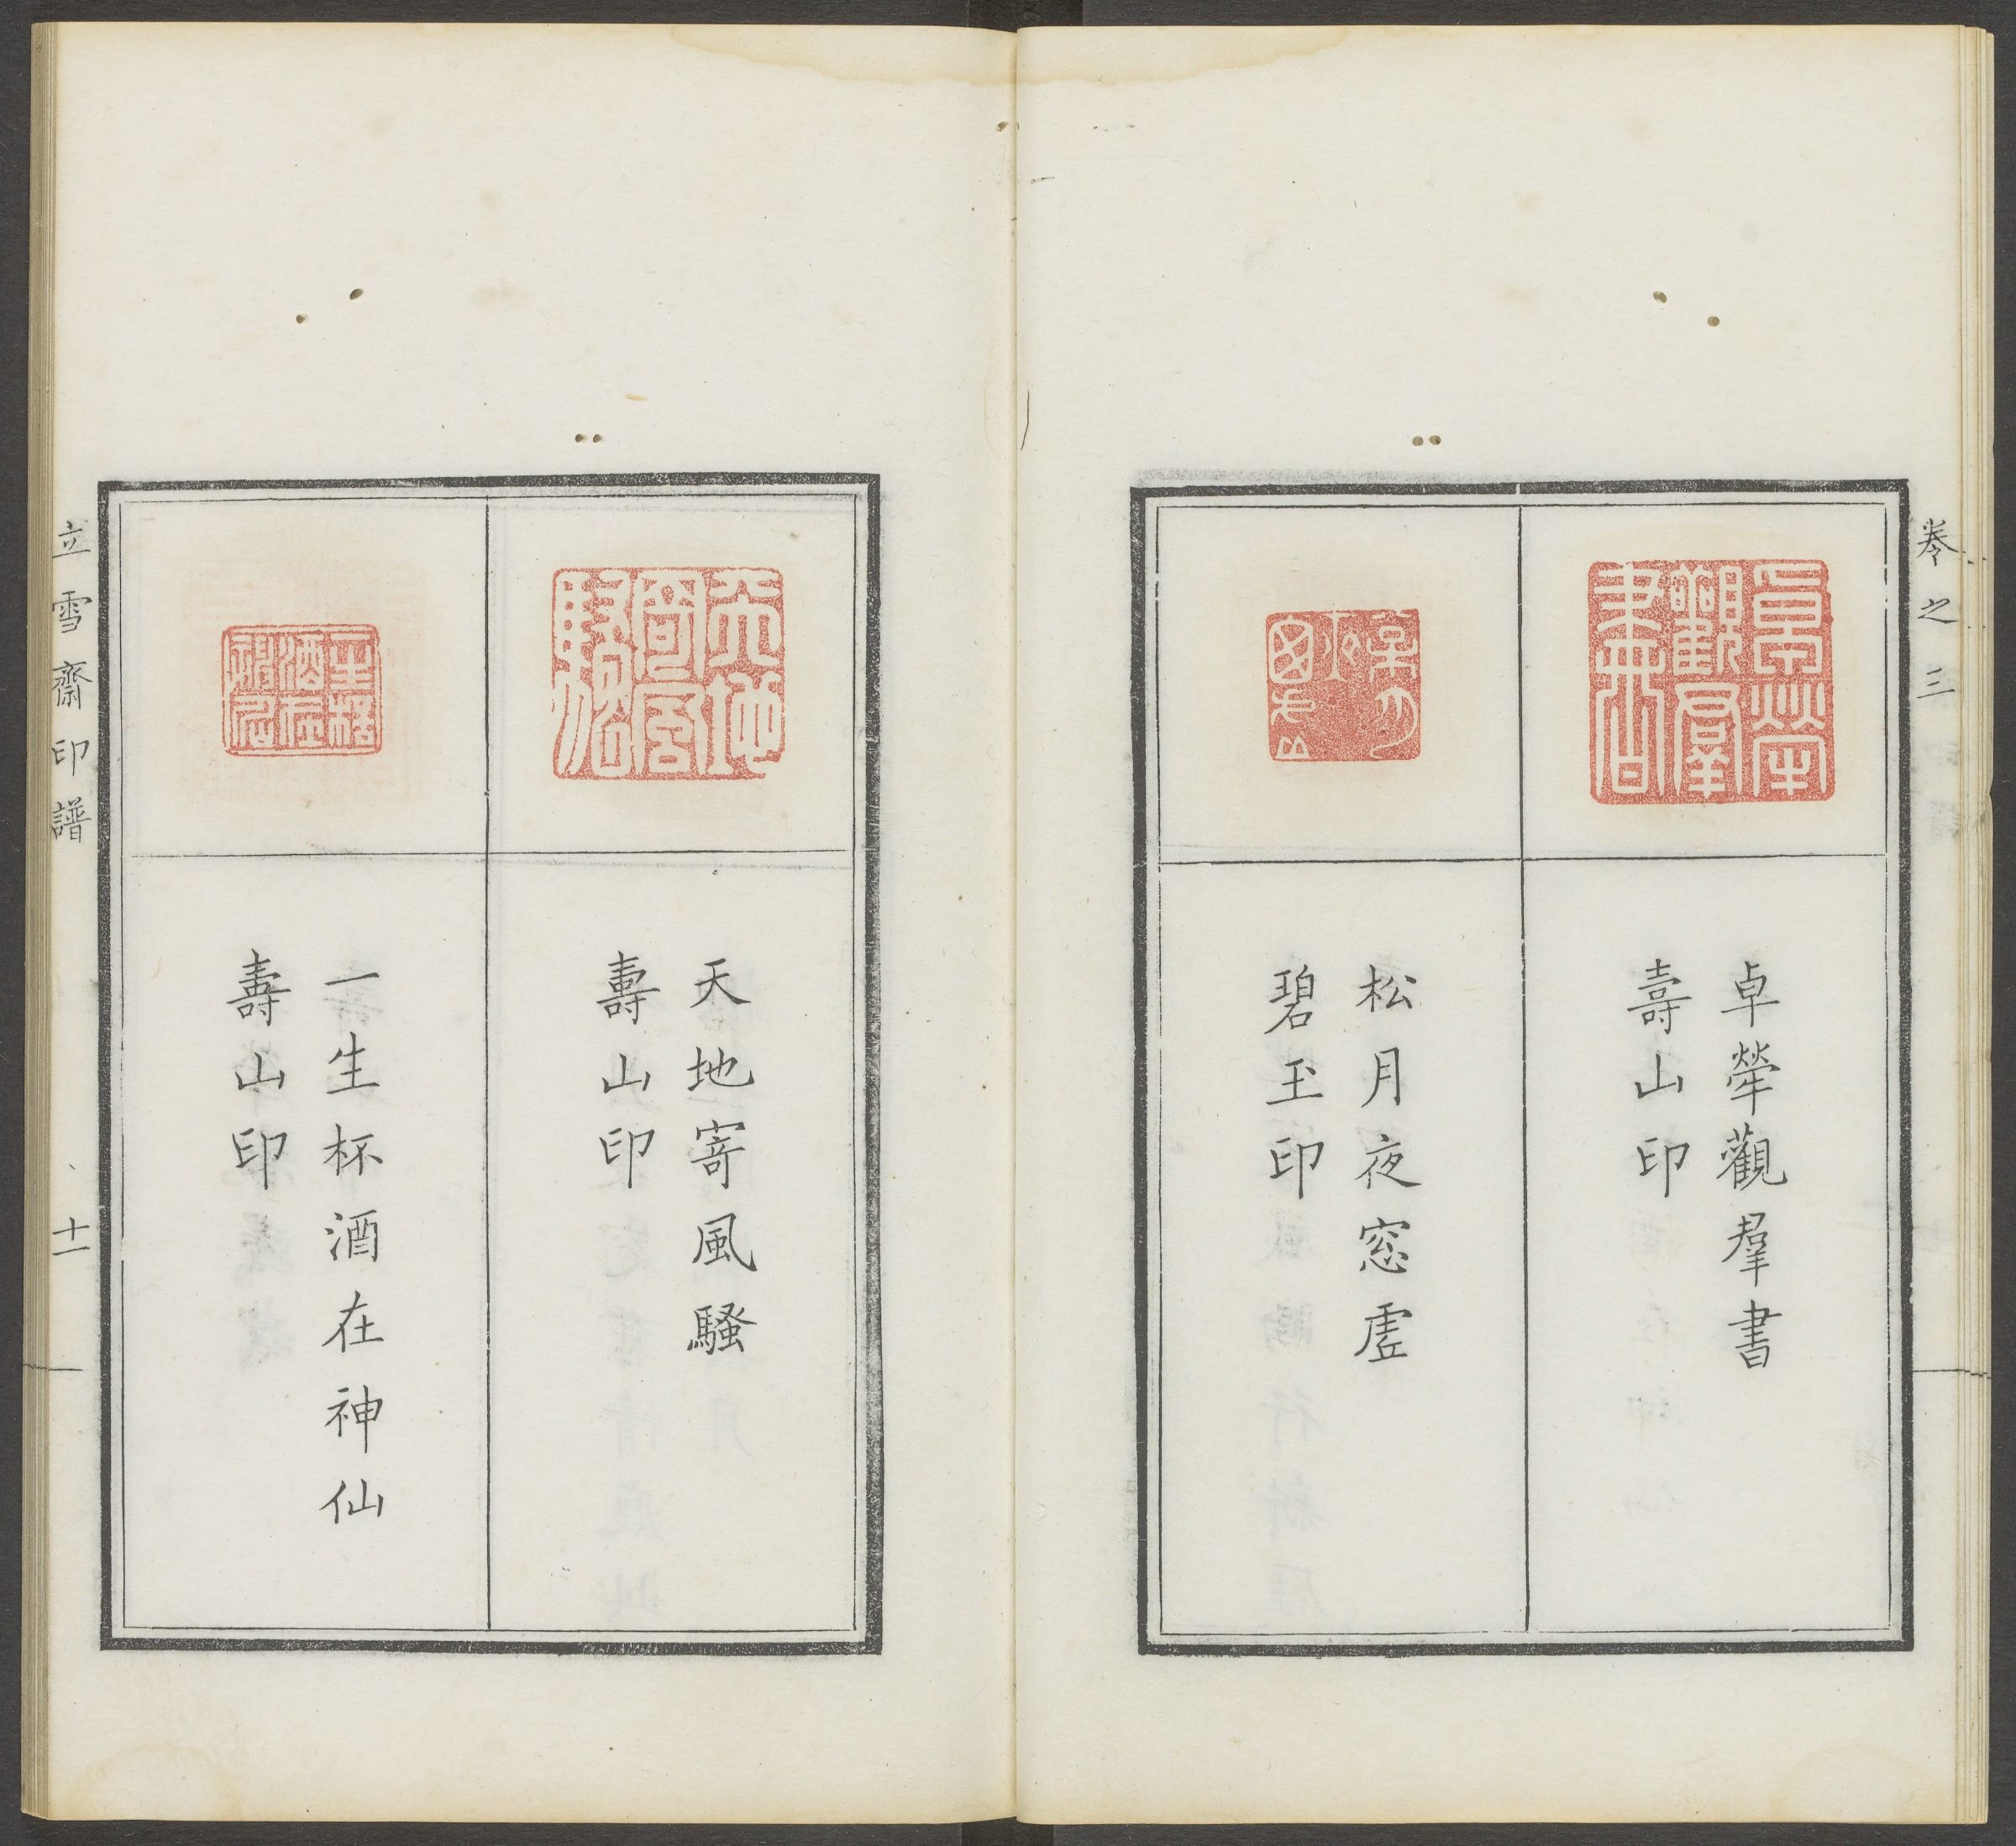 卷之三
卓犖觀羣書
壽山印
松月夜窓虛
碧玉印
天地寄風騷
壽山印
一生杯酒在神仙
壽山印
立雪齋印譜
十一